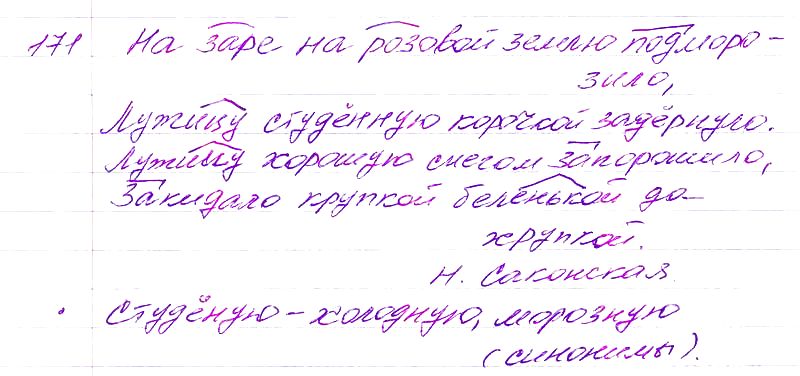 171 На заре на розовой землю подморо-
зило,
Лужицу студённую корочкой задёрнуло.
Лужицу хорошую снегом запорошило,
Закидало крупкой беленькой да
хрупкой.
Н. Саконская.
Студёную - холодную, морозную
(синонимы).